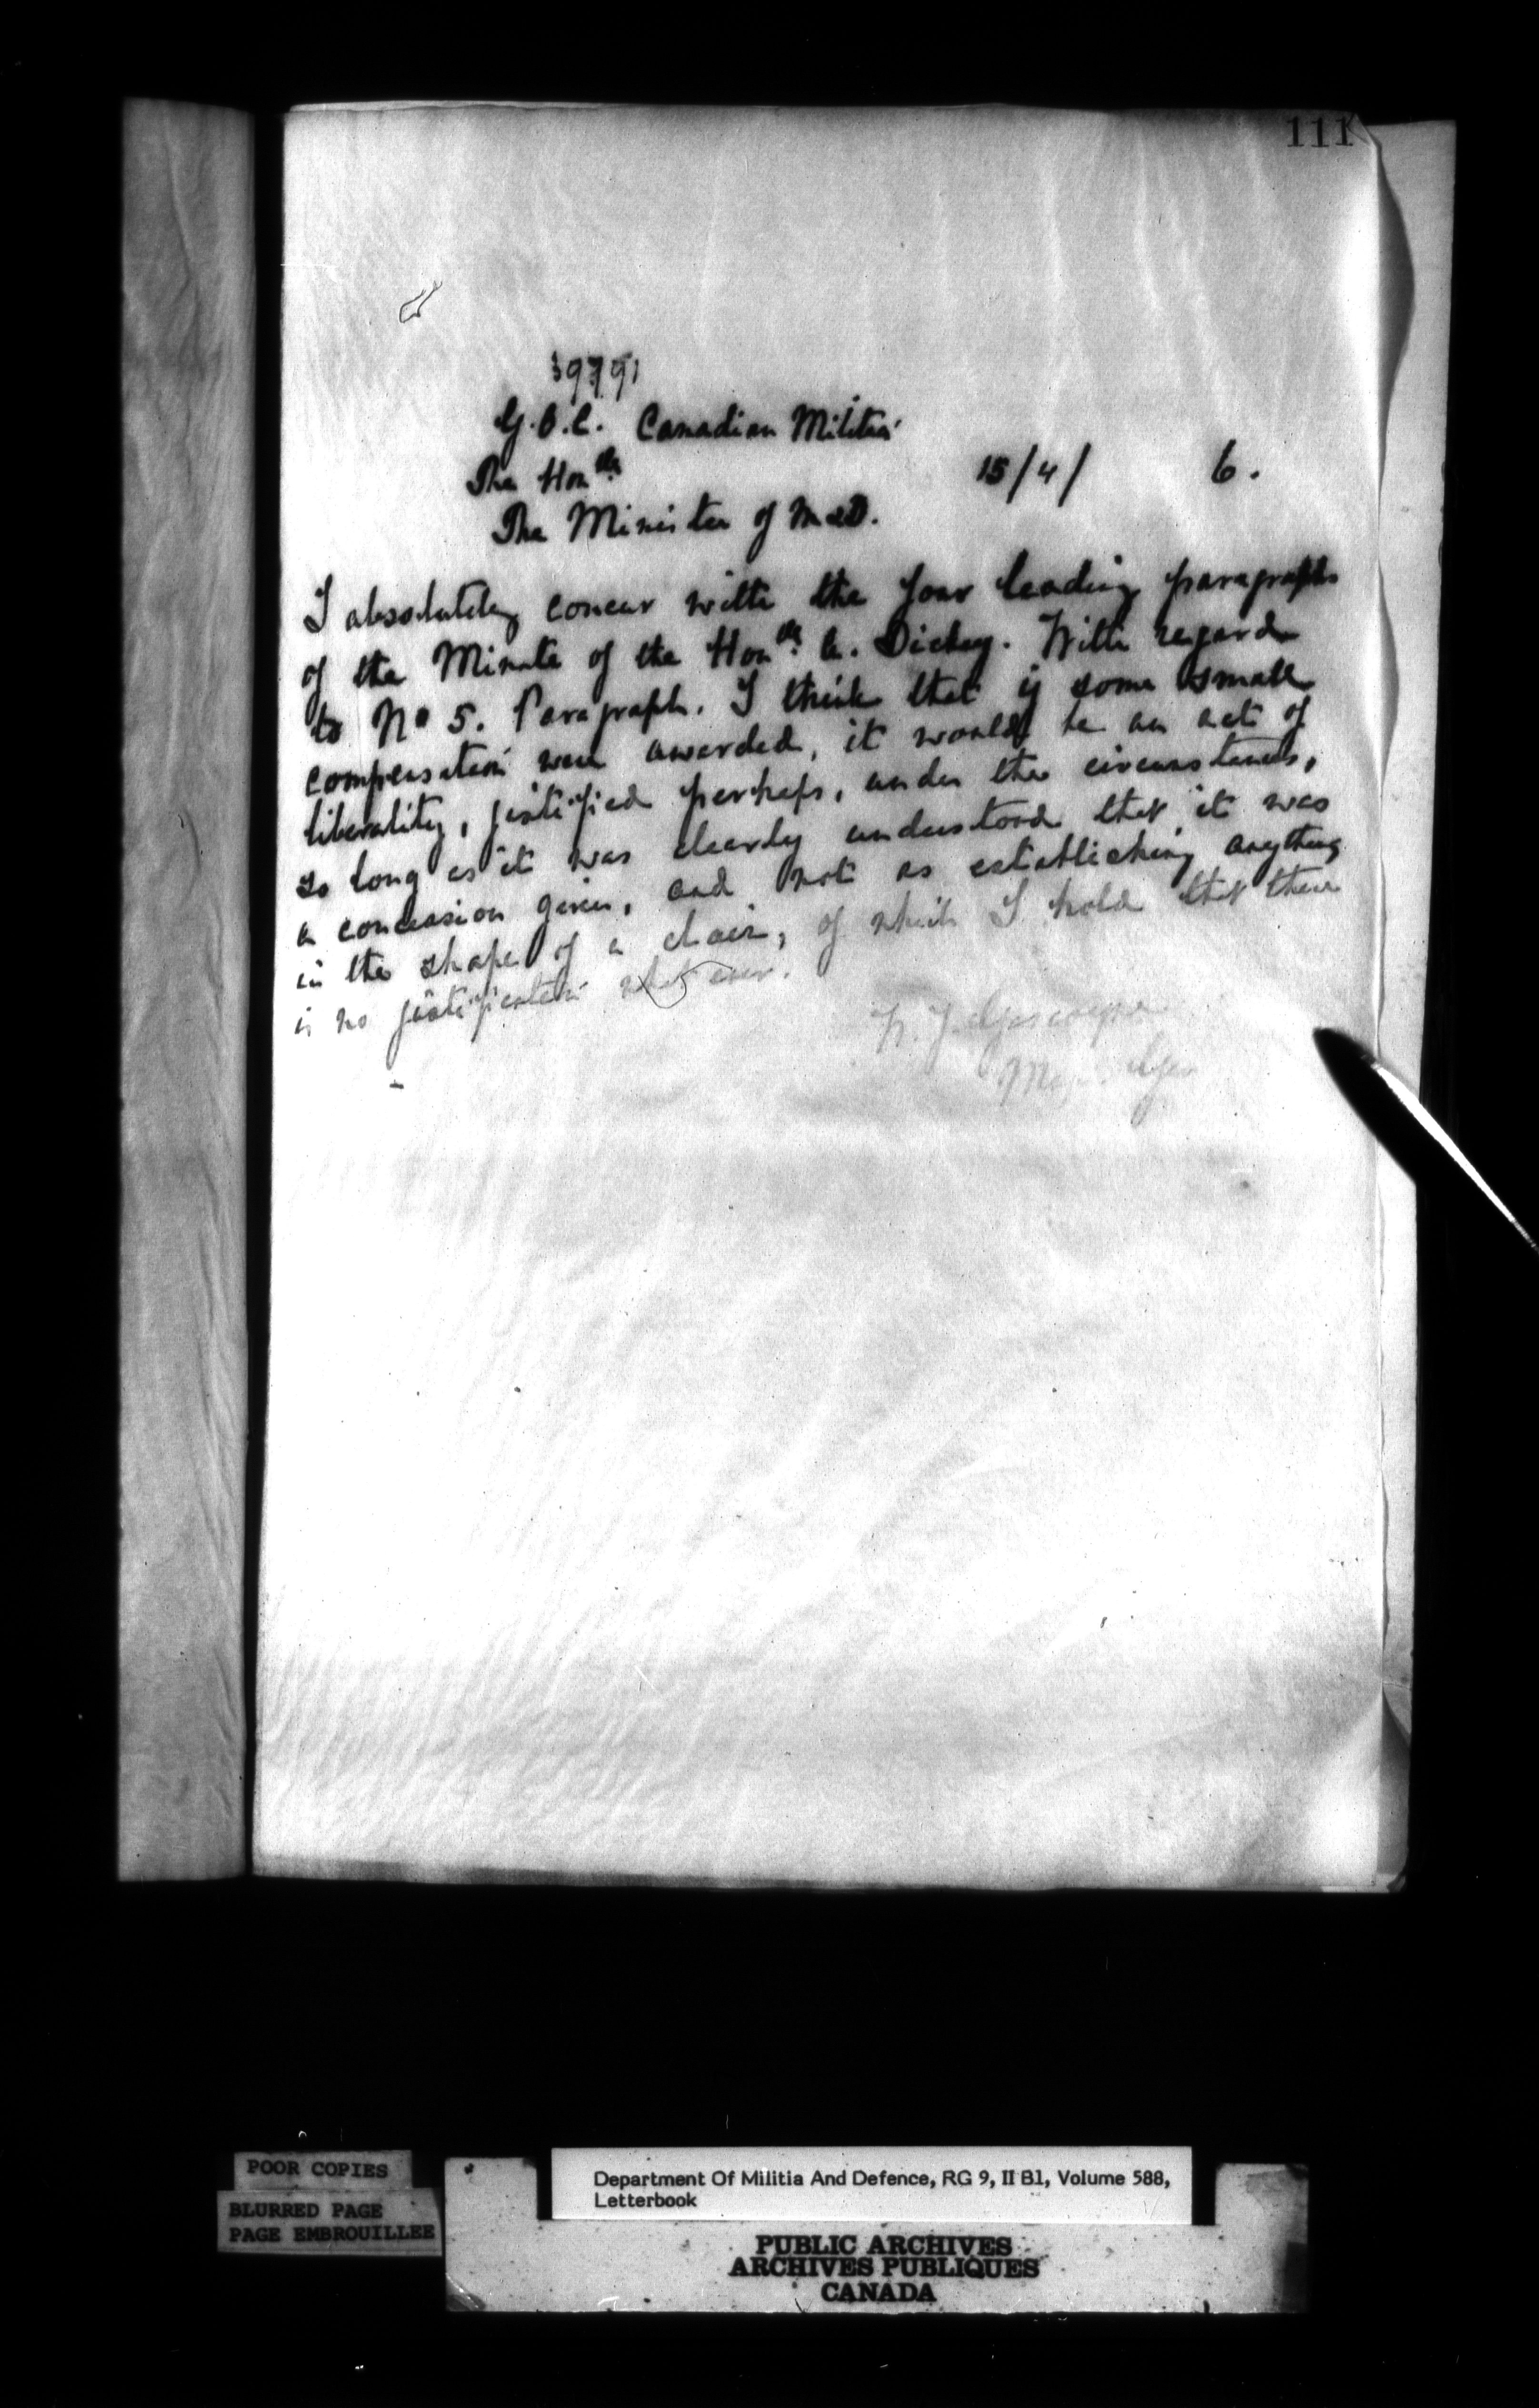 111
39791
G.O.C. Canadian Militia
The Honble
15/4/ 6.
The Minister of M & D.
I absolutely concur with the four leading paragraphs
of the Minute of the Honble A. Dickey. With regard
to No 5. Paragraph. I think that if some small
compensation were awarded, it would be an act of
liberality, justified perhaps, under the circumstances,
so long as it was clearly understood that it was
a concession given, and not as establishing anything
in the shape of a claim, of which I hold that there
is no justification whatever.
Gascoigne
Maj. Gen
POOR COPIES
BLURRED PAGE
PAGE EMBROUILLEE
Department Of Militia And Defence, RG 9, II B1, Volume 588,
Letterbook
PUBLIC ARCHIVES
ARCHIVES PUBLIQUES
CANADA